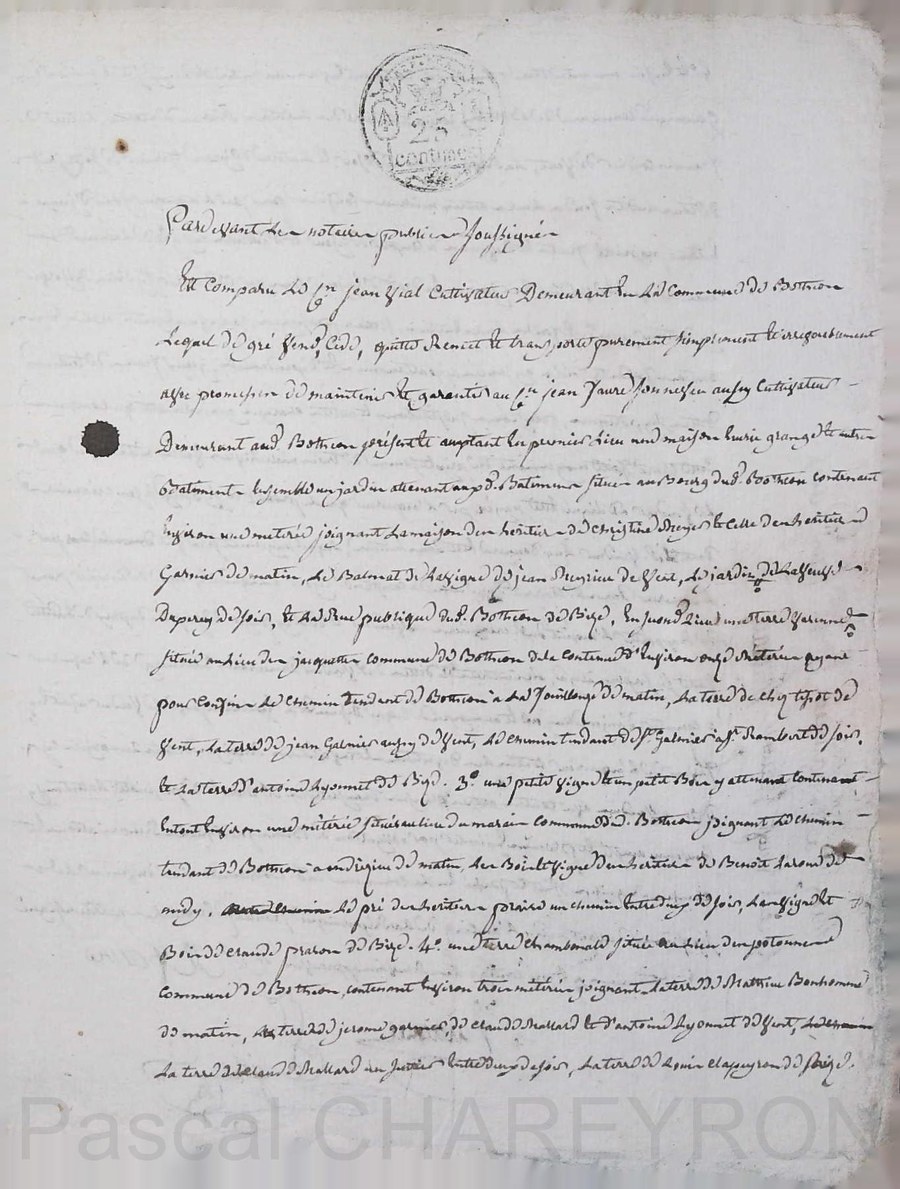 25
centimes
Pardevant Le notaire public Soussigné
Est Comparu Le Cn jean Vial Cultivateur Demeurant En La Commune de Bothéon
Lequel de gré Vend, Cede, quitte Remet et transporte purement simplement et irrevocablement
avec promesse de maintenir et garantir au Cn jean faure aussy Cultivateur
Demeurant aud. Bothéon présent et acceptant En premier Lieu une maison Ecurie grange et autre
Batiment Ensemble un jardin attenant auxd. Batiment situé au Bourg dud. Bothéon contenant
Environ une meterée joignant La maison des héritiers de Christine et Celle des heritiers
Garnier de matin, Le de La Vigne de jean de Vent, Le jardin de La Veuve
de soir, Et La Rue publique dud. Bothéon de Bize, En second Lieu une terre Varenne
située au Lieu des jacquettes commune de Bothéon de la Contenue d'Environ onze Meterée ayant
pour Confin Le Chemin tendant de Bothéon a La de matin, La terre de de
Vent, La terre de jean Garnier aussy de Vent, Le chemin tendant de St Galmier a St Rambert de soir,
Et La terre d'antoine Lyonnet de Bize. 3o. une petite Vigne et un petit Bois y attenant Contenant
En tout Environ une méterée située au lieu du marais commune dud. Bothéon joignant Le chemin
tendant de Bothéon a de matin, Les Bois et Vigne des heritiers de Benoit Laronde de
midy, Le pré des heritiers un chemin Entre deux de soir, La Vigne et
Bois de Claude de Bize. 4o. une terre Chambonale située au Lieu des
Commune de Bothéon, contenant Environ trois méterée joignant La terre de Mathieu Bonhomme
de matin, Les terre de jerome garnier, de Claude Mallard et d'antoine Lyonnet de Vent,
La terre de Claude Mallard un Entre deux de soir, La terre de Louis Clapeyron de Bize.
Pascal CHAREYRON